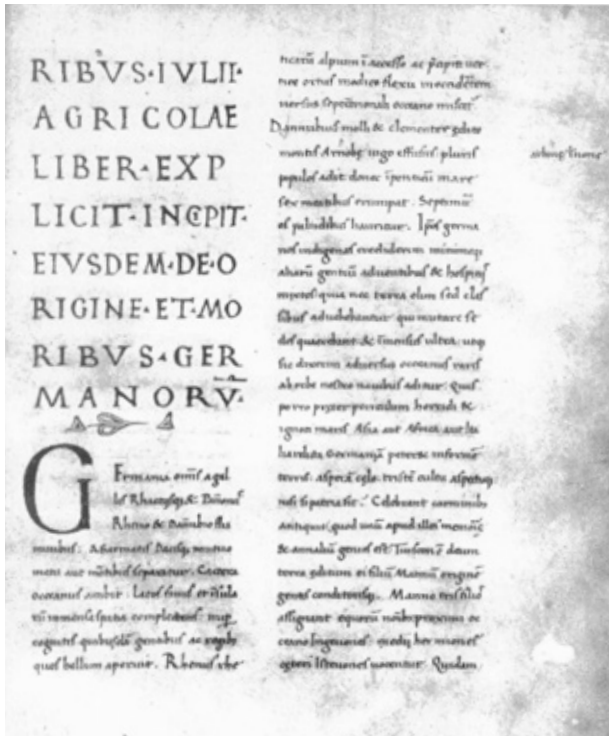 RIBVS·IVLII·
AGRICOLAE
LIBER·EXP
LICIT·INCIPIT·
EIVSDEM·DE·O
RIGINE·ET·MO
RIBVS·GER
MANORV̅·
Germania omīs a gal
lis Rhaetisq; &
Rheno & Danubio flu
minibus: a Sarmatis Dacisq; mutuo
metu aut mōtibus separatur. Caetera
oceanus ambit. Latos sinus et īsula
rū immensa spatia complectens nup
cognitis quibusdā gentibus ac regibȝ
quos bellum aperuit. Rhenus rhe
ticarū alpium ī accesso ac p̄cipiti uer
tice ortus modico flexu in occidētem
uersus septētrionali oceano miscet̄
Dannubius molli & clementer edito
montis Arnobę iugo effusus pluris
populos adit donec ī ponticū mare
sex meatibus erumpat. Septimū
os paludibus hauritur. Ipos germa
nos indigenas crediderim minimeq;
aliarū gentiū aduentibus & hospitijs
mixtos: quia nec terra olim sed clas
sibus aduehebantur qui mutare se
des quaerebant & īmensus ultra utq;
sic dixerim aduersus oceanus raris
ab orbe nostro nauibus aditur. Quis
porro preter periculum horridi &
ignoti maris Asia aut Africa aut Ita
lia relicta Germaniā peteret informē
terris: asperā celo: tristē cultu aspectuq;
nisi si patria sit. Celebrant carminibȝ
antiquis, quod unū apud illos memorię
& annaliū genus est: Tuisconē deum
terra editum ei filiū Mannū originē
gentis conditorisq;. Manno tris filios
assignant e quorū noībȝ proximi oc
ceano Ingeuones: medij hermiones
ceteri Istaeuones uocentur. Quidam